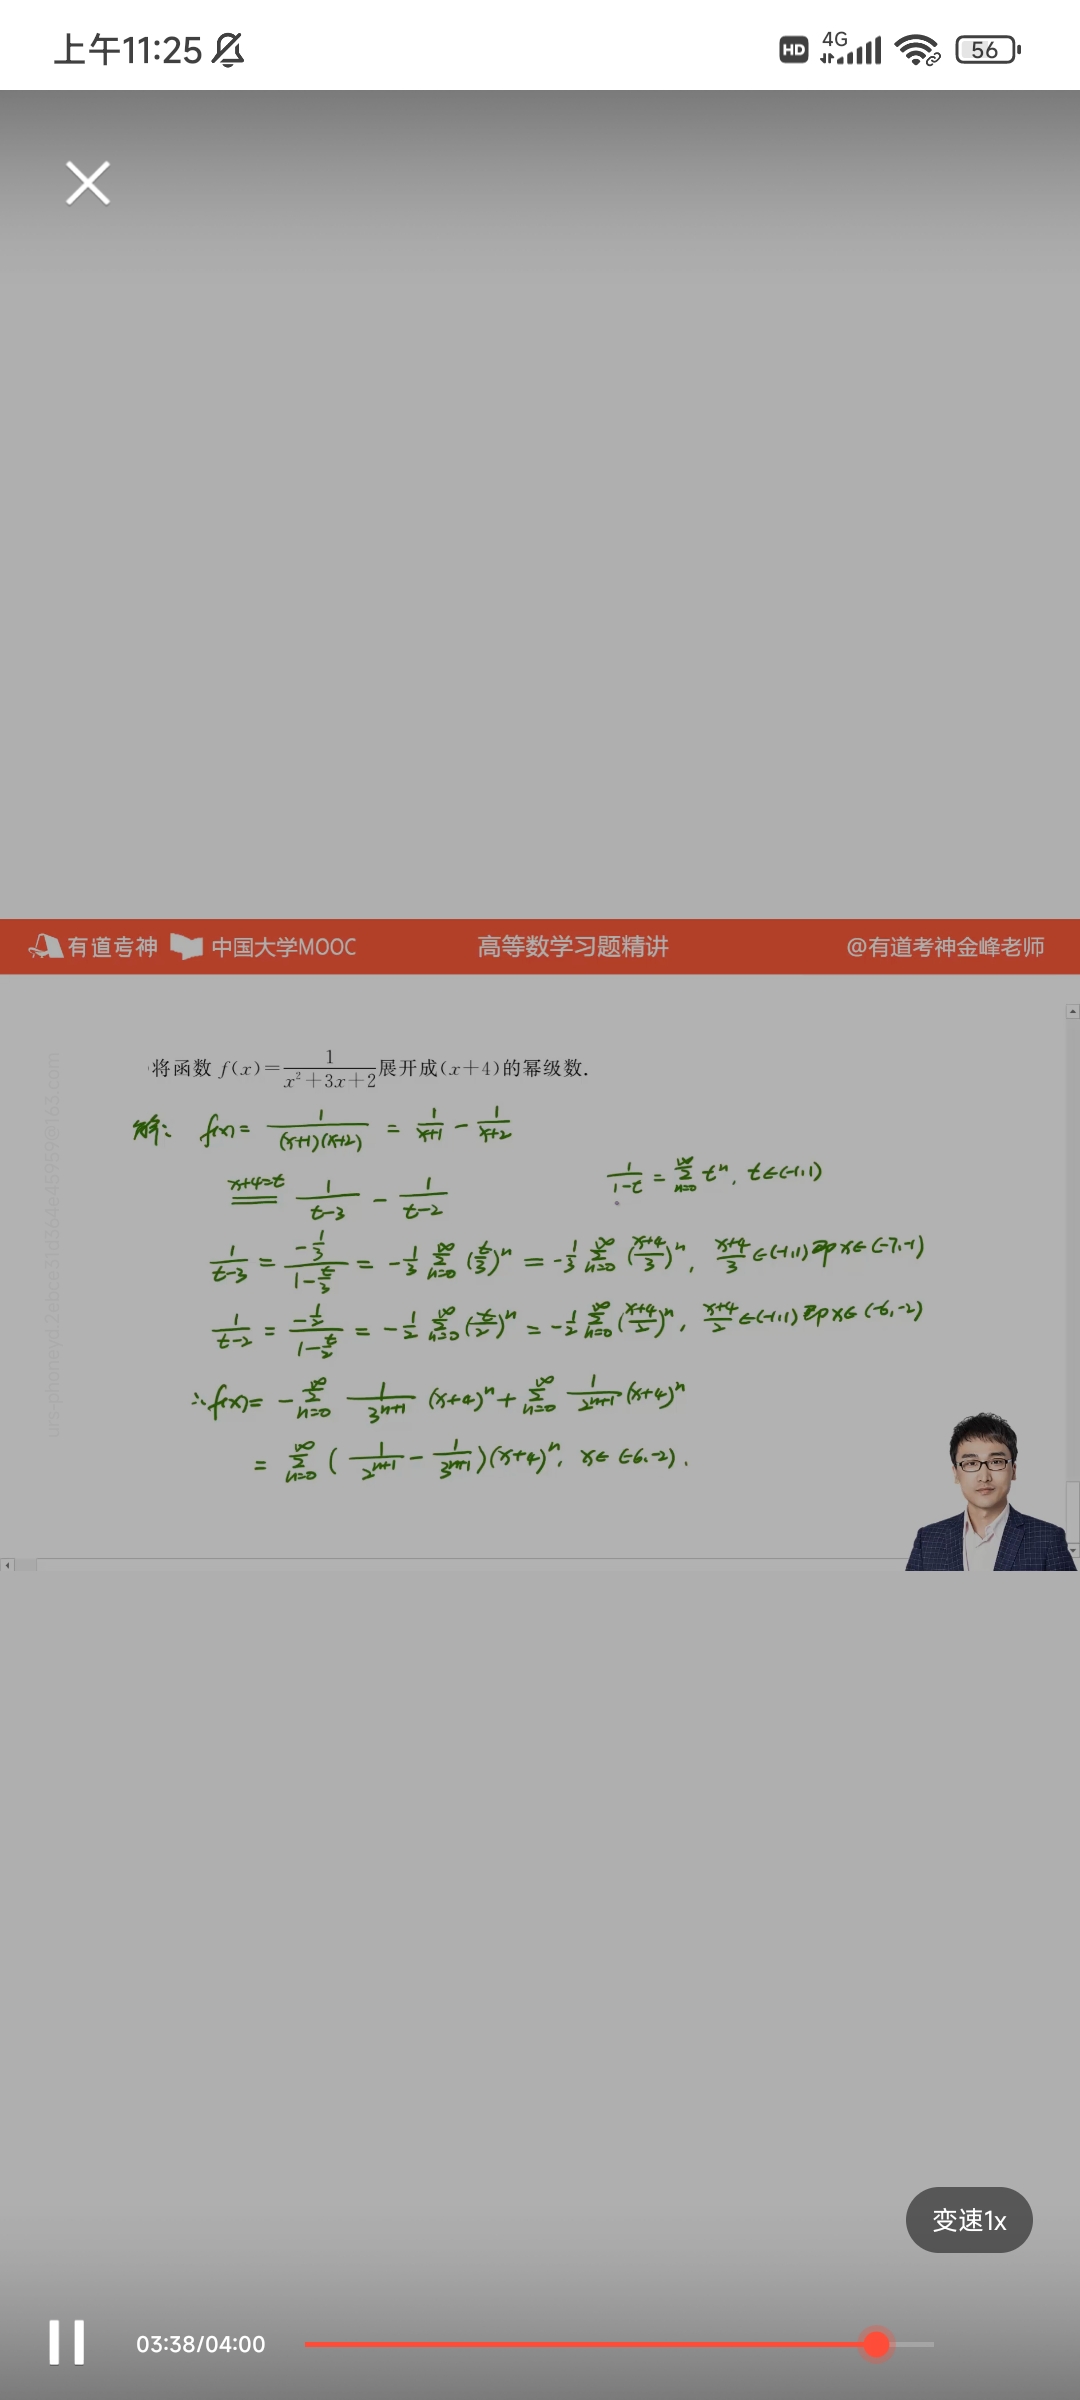 上午11:25 HD 4G 56
有道考神 中国大学MOOC 高等数学习题精讲 @有道考神金峰老师
将函数 f(x)=1/(x²+3x+2)展开成(x+4)的幂级数.
解: f(x)= 1/((x+1)(x+2)) = 1/(x+1) - 1/(x+2)
x+4=t == 1/(t-3) - 1/(t-2) 1/(1-t) = ∑_{n=0}^{∞} tⁿ, t∈(-1,1)
1/(t-3) = (-1/3)/(1-t/3) = -1/3 ∑_{n=0}^{∞} (t/3)ⁿ = -1/3 ∑_{n=0}^{∞} ((x+4)/3)ⁿ, (x+4)/3 ∈(-1,1) 即 x∈(-7,-1)
1/(t-2) = (-1/2)/(1-t/2) = -1/2 ∑_{n=0}^{∞} (t/2)ⁿ = -1/2 ∑_{n=0}^{∞} ((x+4)/2)ⁿ, (x+4)/2 ∈(-1,1) 即 x∈(-6,-2)
∴f(x)= -∑_{n=0}^{∞} 1/3ⁿ⁺¹ (x+4)ⁿ + ∑_{n=0}^{∞} 1/2ⁿ⁺¹ (x+4)ⁿ
= ∑_{n=0}^{∞} ( 1/2ⁿ⁺¹ - 1/3ⁿ⁺¹ )(x+4)ⁿ, x∈(-6,-2).
变速1x
03:38/04:00